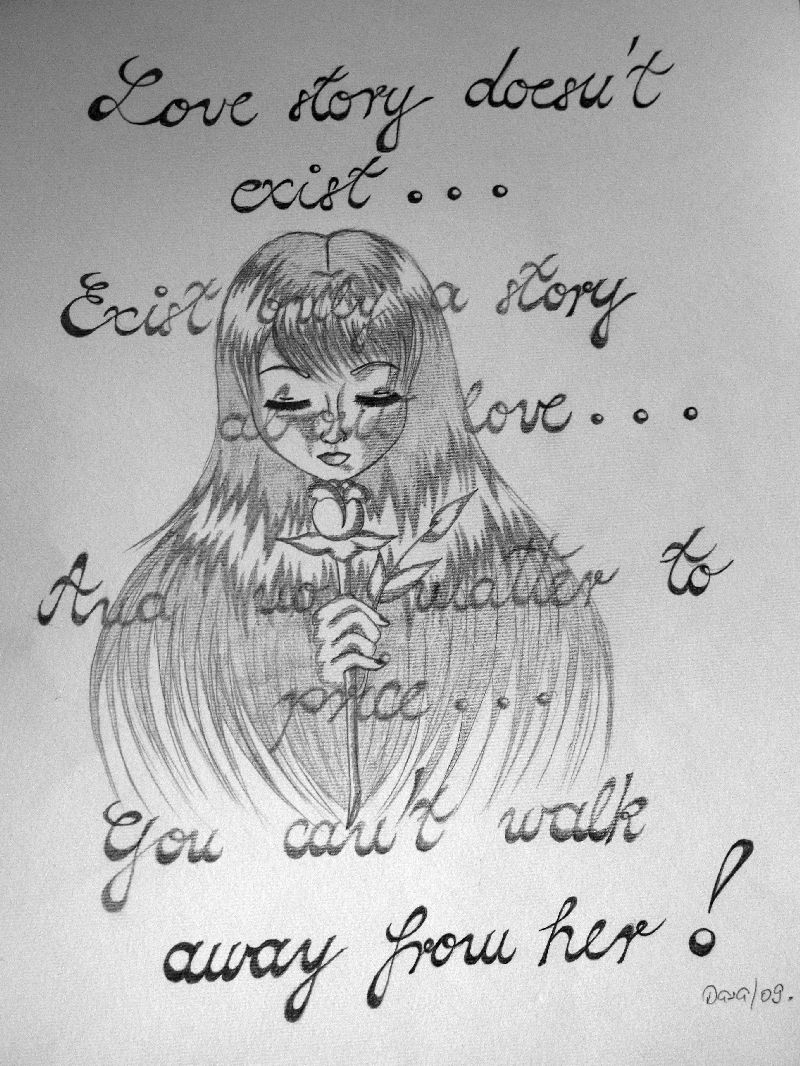 Love story doesn't
exist...
Exist only a story
about love...
And no matter to
price...
You can't walk
away from her!
Dasa/09.